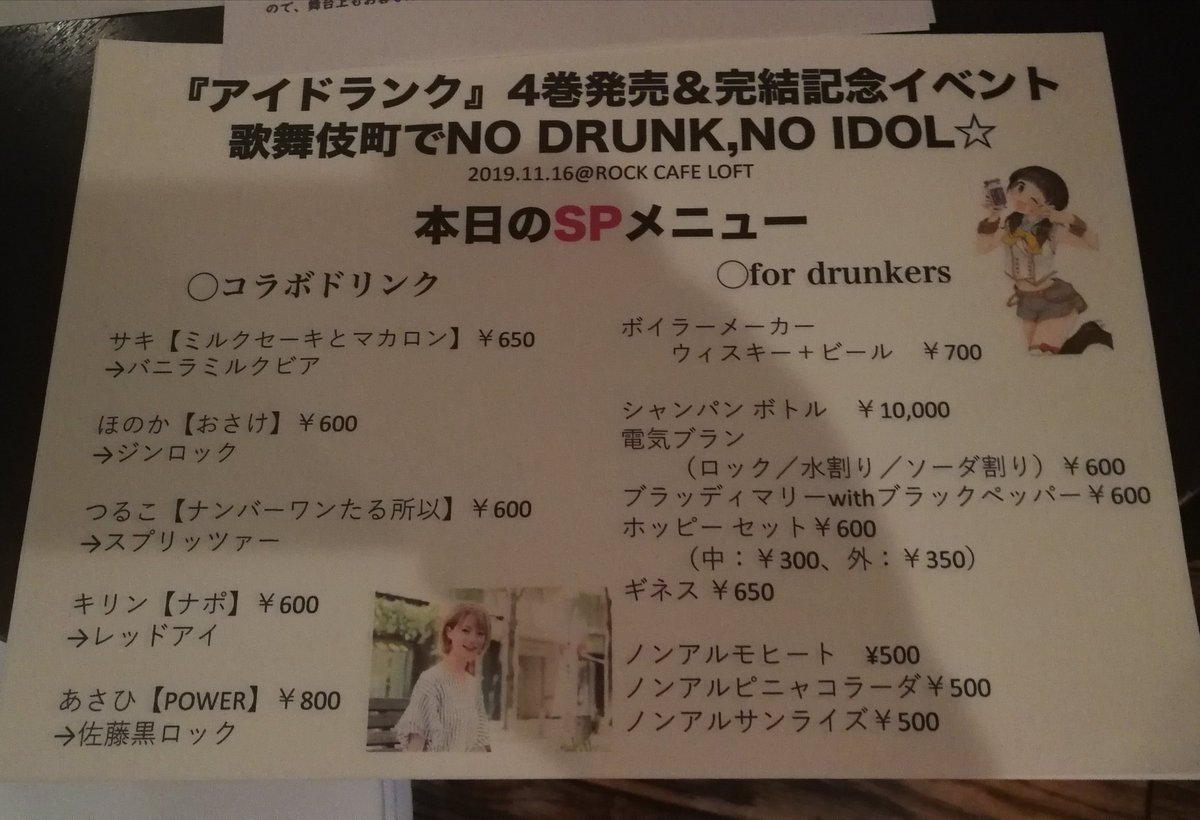 ので、舞台上もお
『アイドランク』4巻発売＆完結記念イベント
歌舞伎町でNO DRUNK,NO IDOL☆
2019.11.16@ROCK CAFE LOFT
本日のSPメニュー
〇コラボドリンク
サキ【ミルクセーキとマカロン】￥650
→バニラミルクビア
ほのか【おさけ】￥600
→ジンロック
つるこ【ナンバーワンたる所以】￥600
→スプリッツァー
キリン【ナポ】￥600
→レッドアイ
あさひ【POWER】￥800
→佐藤黒ロック
〇for drunkers
ボイラーメーカー
ウィスキー＋ビール　￥700
シャンパン ボトル　￥10,000
電気ブラン
（ロック／水割り／ソーダ割り）￥600
ブラッディマリーwithブラックペッパー￥600
ホッピー セット￥600
（中：￥300、外：￥350）
ギネス ￥650
ノンアルモヒート　¥500
ノンアルピニャコラーダ￥500
ノンアルサンライズ￥500